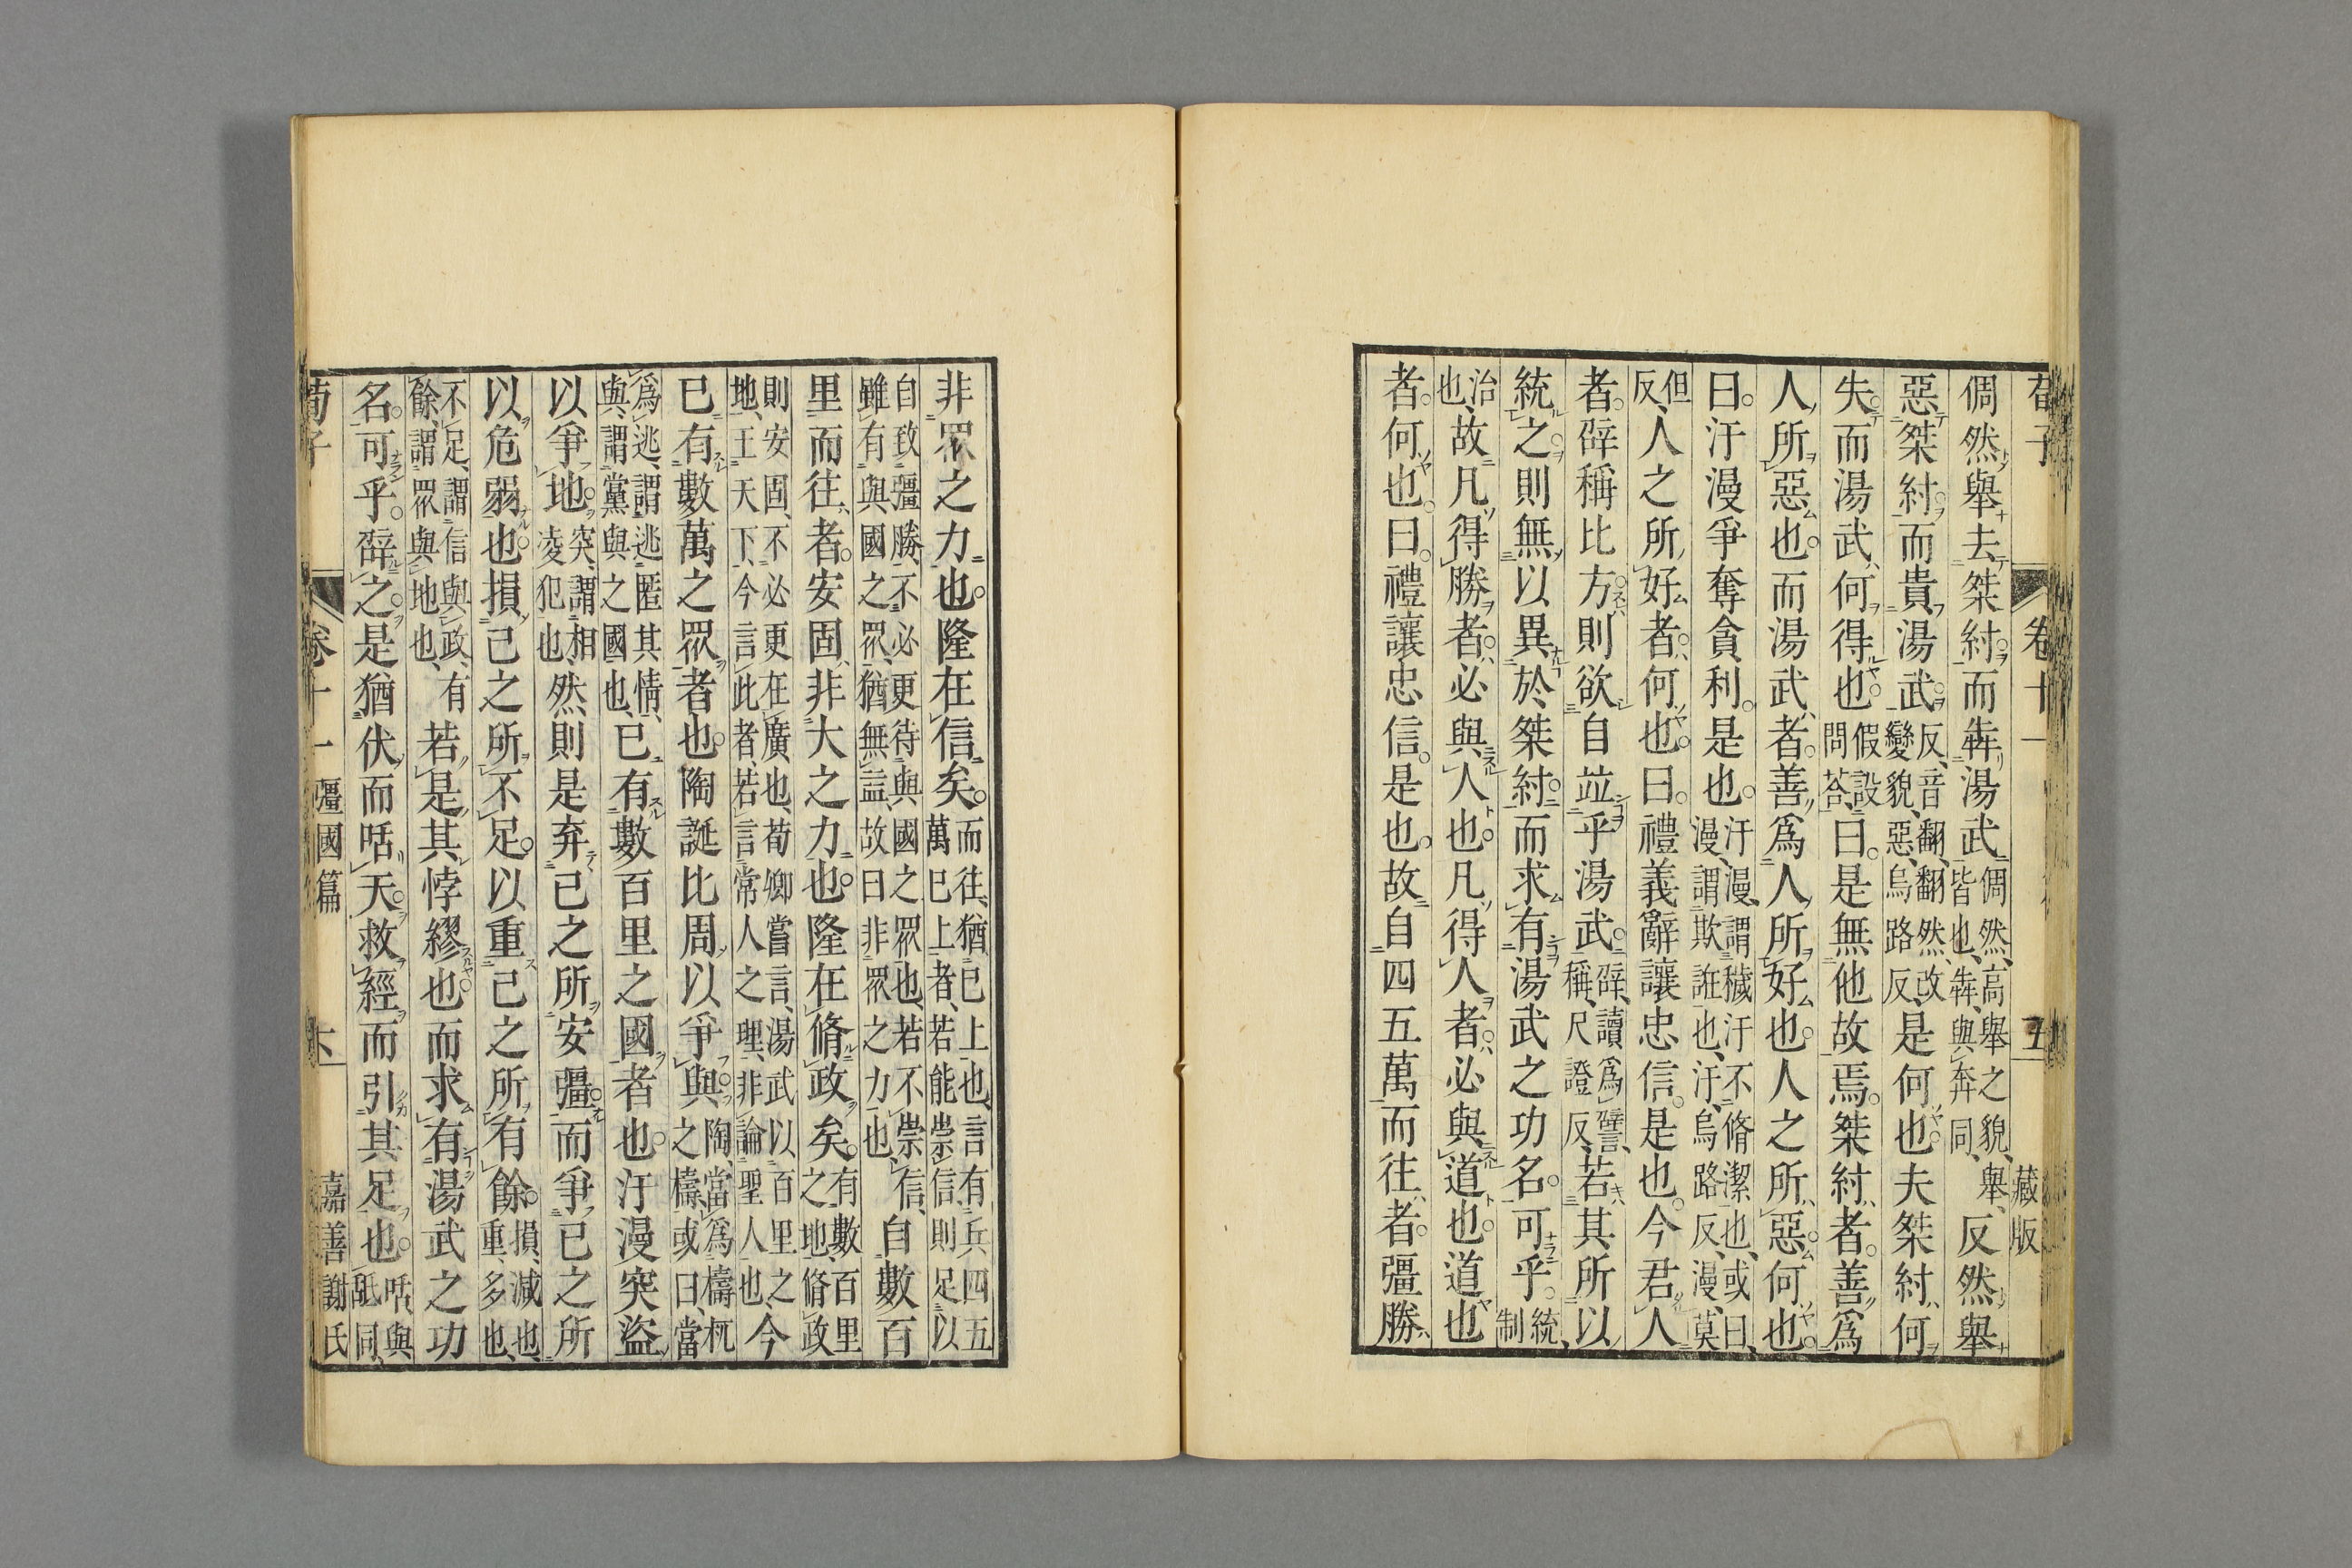 荀子 卷十一 五 藏版
倜然舉去桀紂而犇湯武倜然、高舉之貌、舉、皆也、犇、與奔同、反然舉
惡桀紂而貴湯武反、音翻、翻然、改變貌、惡、烏路反、是何也夫桀紂何
失而湯武何得也假設問荅、曰是無他故焉桀紂者善爲
人所惡也而湯武者善爲人所好也人之所惡何也
曰汙漫爭奪貪利是也汙漫、謂穢汙不脩潔也、或曰、漫、謂欺誑也、汙、烏路反、漫、莫
但反、人之所好者何也曰禮義辭讓忠信是也今君人
者辟稱比方則欲自竝乎湯武辟、讀爲譬、稱、尺證反、若其所以
統之則無以異於桀紂而求有湯武之功名可乎統、制
治也、故凡得勝者必與人也凡得人者必與道也道也
者何也曰禮讓忠信是也故自四五萬而往者彊勝
非眾之力也隆在信矣而往、猶已上也、言有兵四五萬已上者、若能崇信、則足以
自致彊勝、不必更待與國之眾也、若不崇信、雖有與國之眾、猶無益、故曰非眾之力也、自數百
里而往者安固非大之力也隆在脩政矣有數百里之地、脩政
則安固、不必更在廣也、荀卿嘗言、湯武以百里之地、王天下、今言此者、若言常人之理、非論聖人也、今
已有數萬之眾者也陶誕比周以爭與陶、當爲檮杌之檮、或曰、當
爲逃、謂逃匿其情、與、謂黨與之國也、已有數百里之國者也汙漫突盜
以爭地突、謂相淩犯也、然則是弃己之所安彊而爭己之所
以危弱也損己之所不足以重己之所有餘損、減也、重、多也、
不足、謂信與政、有餘、謂眾與地也、若是其悖繆也而求有湯武之功
名可乎辟之是猶伏而咶天救經而引其足也咶、與舐同、
荀子 卷十一 彊國篇 六 嘉善謝氏